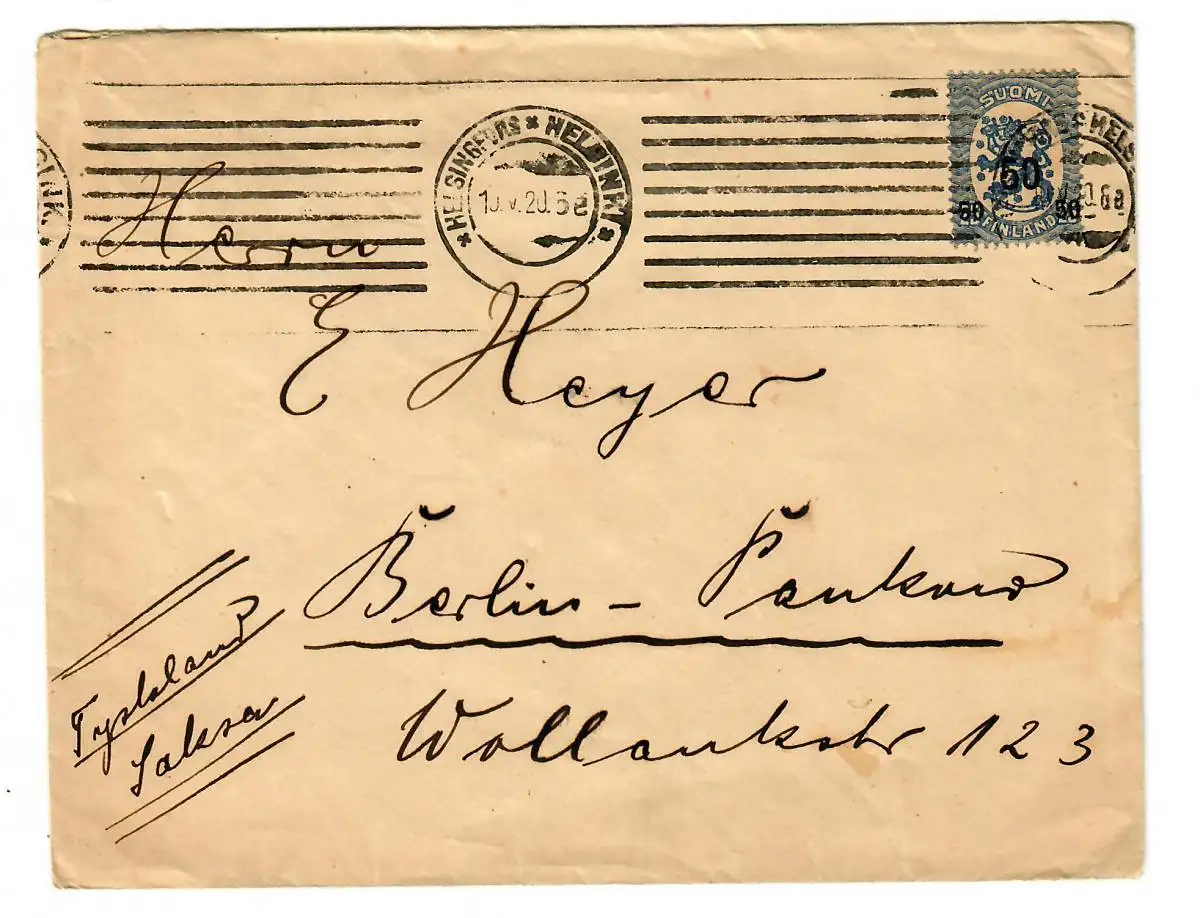 SUOMI
50
50 50
FINLAND
* HELSINGFORS * HELSINKI *
10.V.20.6a
Herrn
E Heyer
Berlin - Pankow
Wollankstr 123
Tyskland
Saksa